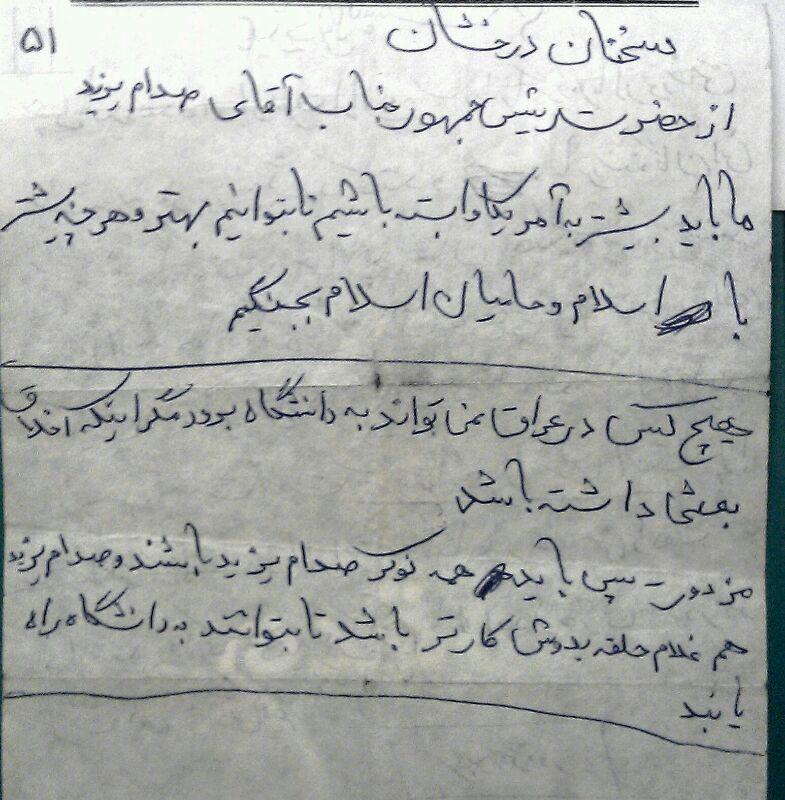 ۵۱
سخنان درخشان
از حضرت رئیس جمهور جناب آقای صدام یزید
ما باید بیشتر به آمریکا وابسته باشیم تا بتوانیم بهتر و هر چه بیشتر
با اسلام و حامیان اسلام بجنگیم
هیچ کس در عراق نمی تواند به دانشگاه برود مگر اینکه اخلاق
بعثی داشته باشد
پس باید همه نوکر صدام یزید باشند و صدام یزید
هم غلام حلقه بدوش کارتر باشد تا بتوانند به دانشگاه راه
یابند